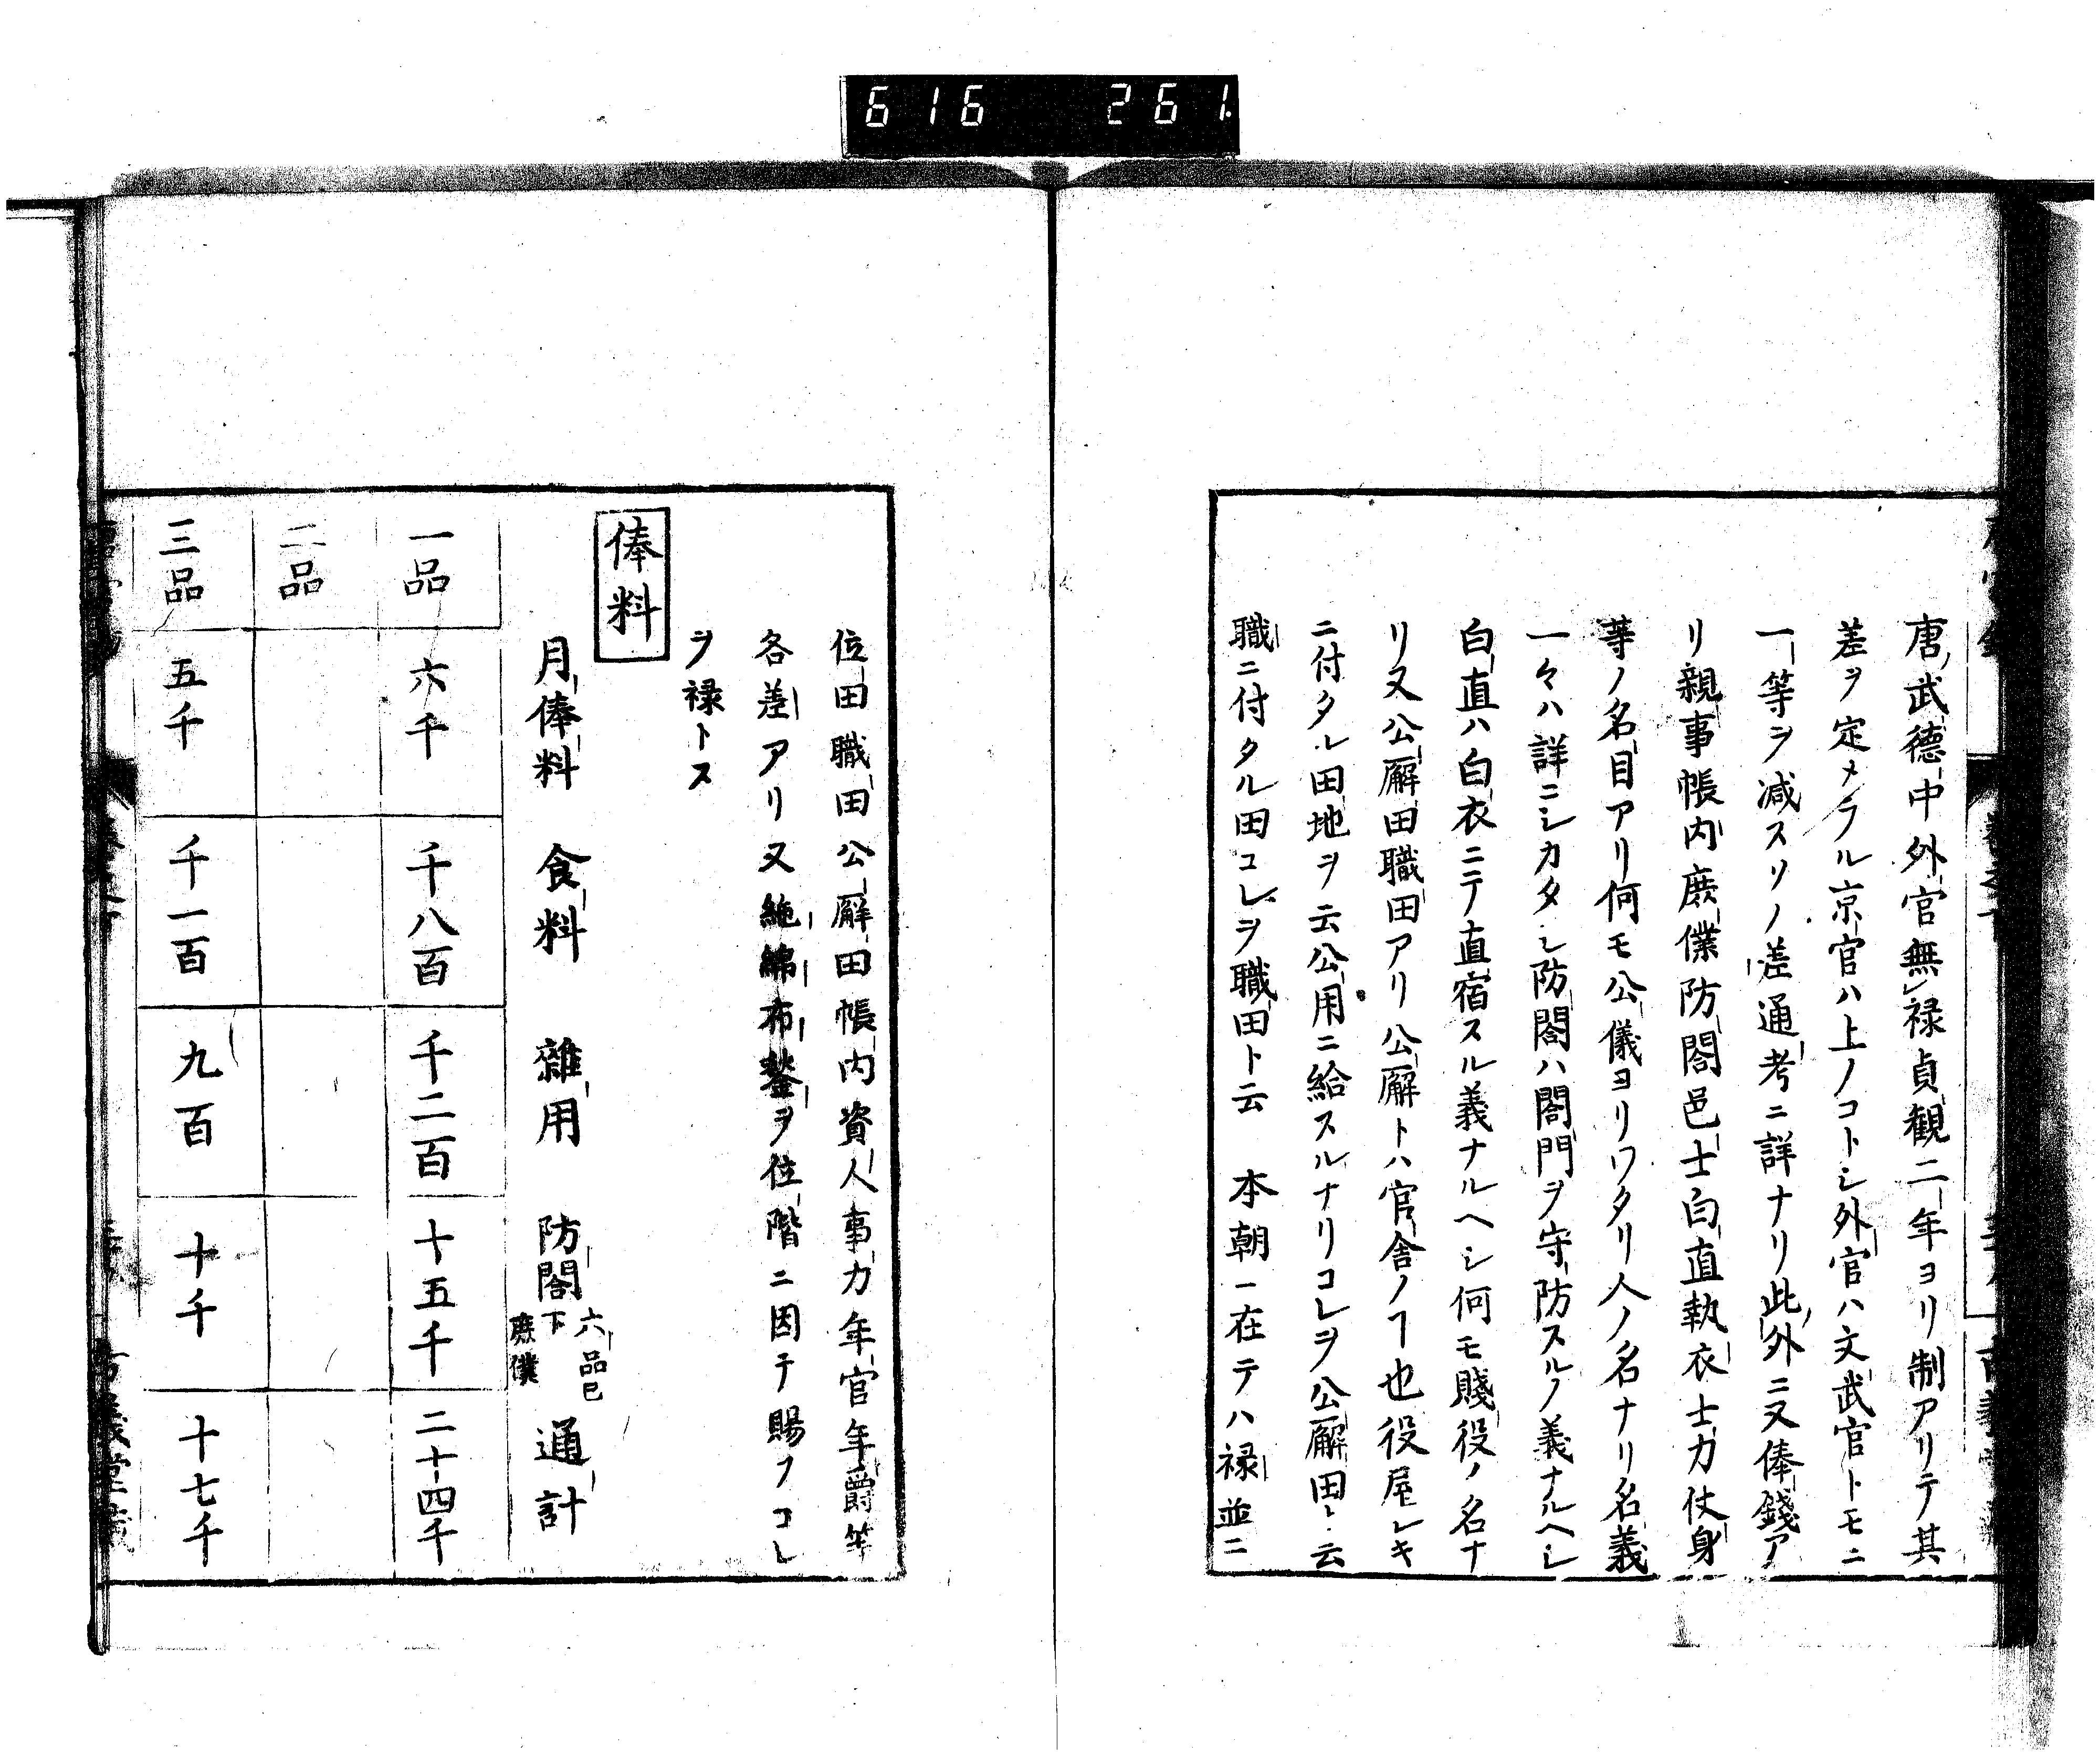 616 261
唐武徳中外官無禄貞観二年ヨリ制アリテ其
差ヲ定メラル京官ハ上ノコトシ外官ハ文武官トモニ
一等ヲ減スソノ差通考ニ詳ナリ此外ニ又俸錢ア
リ親事帳内庶僕防閤邑士白直執衣士力仗身
等ノ名目アリ何モ公儀ヨリワタリ人ノ名ナリ名義
一々ハ詳ニシカタシ防閤ハ閤門ヲ守防スルノ義ナルヘシ
白直ハ白衣ニテ直宿スル義ナルヘシ何モ賤役ノ名ナ
リ又公廨田職田アリ公廨トハ官舎ノヿ也役屋シキ
ニ付タル田地ヲ云公用ニ給スルナリコレヲ公廨田ト云
職ニ付タル田コレヲ職田ト云 本朝ニ在テハ禄並ニ
位田職田公廨田帳内資人事力年官年爵等
各差アリ又絁綿布鍫ヲ位階ニ因テ賜フコレ
ヲ禄トス
俸料
月俸料 食料 雜用 防閤 六品已下庶僕 通計
一品 六千 千八百 千二百 十五千 二十四千
二品
三品 五千 千一百 九百 十千 十七千